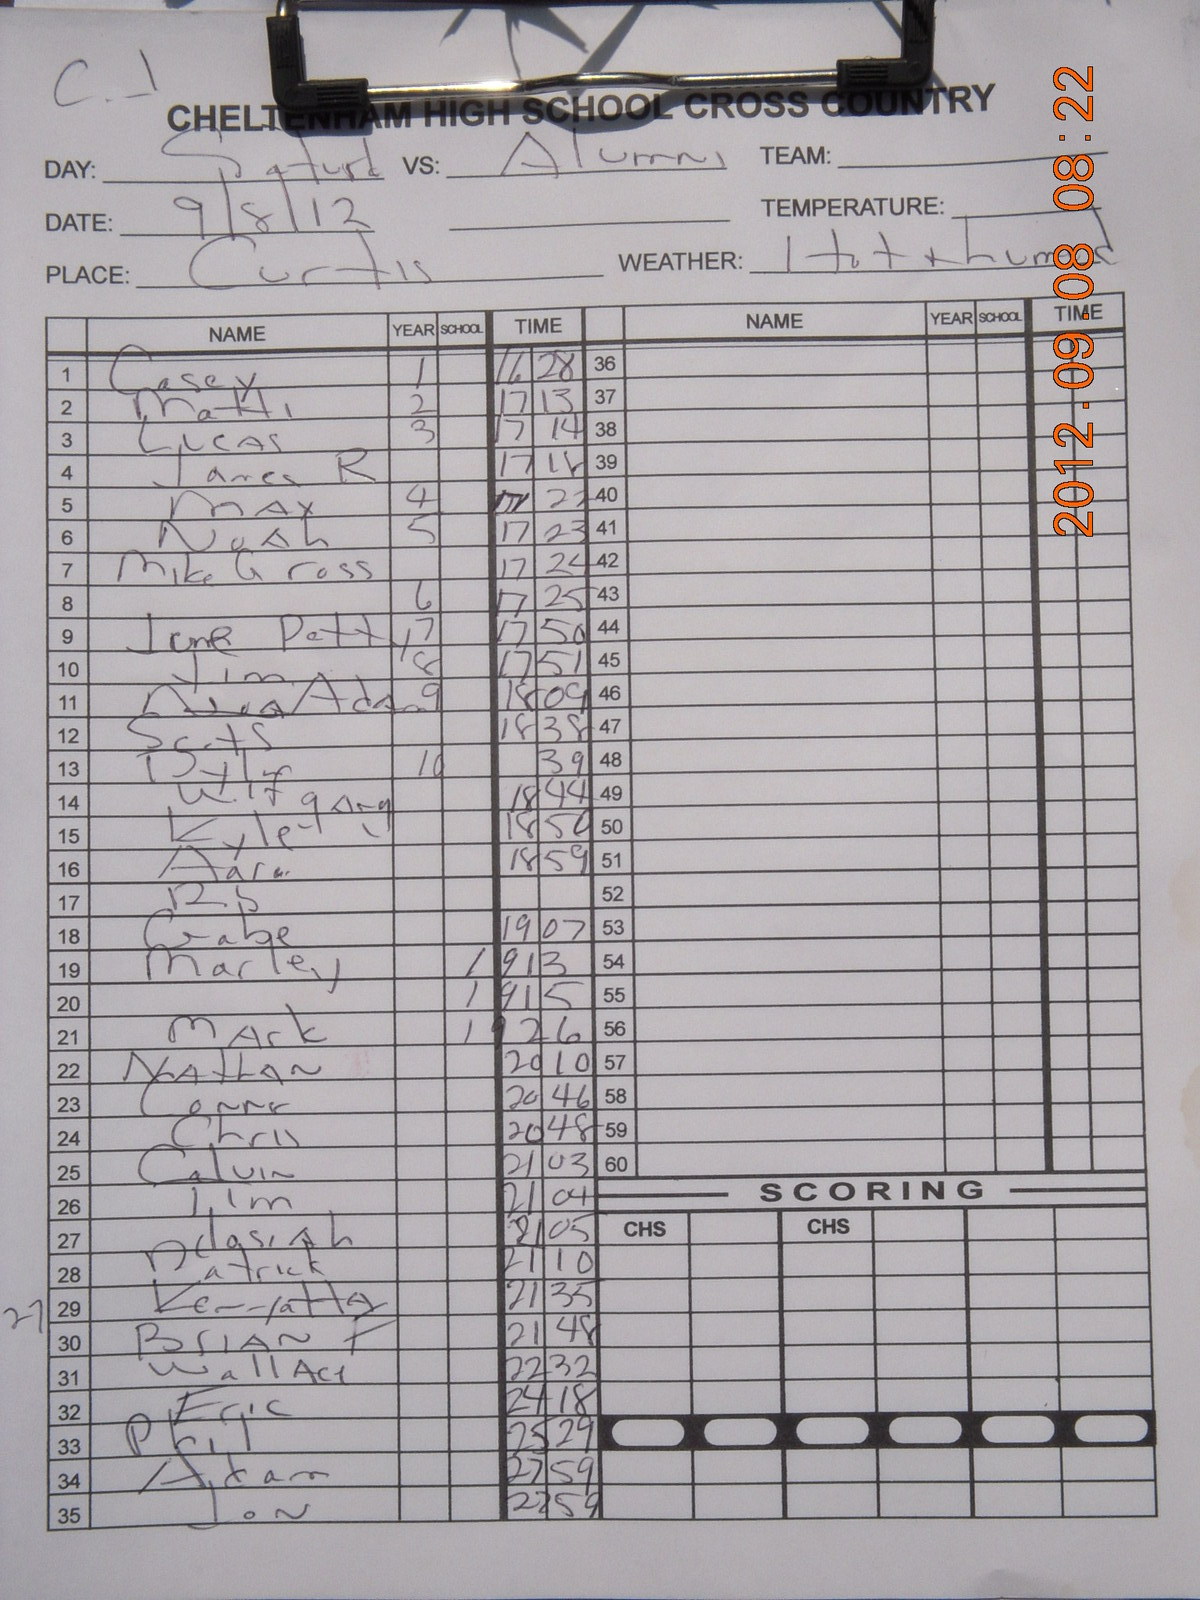 C.1
CHELTENHAM HIGH SCHOOL CROSS COUNTRY
DAY: Saturd VS: Alumni TEAM:
DATE: 9/8/12 TEMPERATURE:
PLACE: Curtis WEATHER: Hot + humid
2012.09.08 08:22
NAME YEAR SCHOOL TIME NAME YEAR SCHOOL TIME
1 Casey 1 16 28 36
2 Matti 2 17 13 37
3 Lucas 3 17 14 38
4 James R 17 18 39
5 Max 4 22 40
6 Noah 5 17 23 41
7 Mike Gross 17 24 42
8 6 17 25 43
9 June Petty 7 17 50 44
10 Jim 8 17 51 45
11 Adam 9 18 09 46
12 18 38 47
13 10 39 48
14 18 44 49
15 Kyle 18 50 50
16 18 59 51
17 52
18 Gabe 19 07 53
19 Marley 19 13 54
20 19 15 55
21 Mark 19 26 56
22 Nathan 20 10 57
23 Conner 20 46 58
24 Chris 20 48 59
25 Calvin 21 03 60
26 Jim 21 04
SCORING
27 21 05 CHS CHS
28 Patrick 21 10
27 29 21 35
30 Brian F 21 48
31 Wallace 22 32
32 Eric 24 18
33 Phil 25 29
34 Adam 27 59
35 Jon 27 59